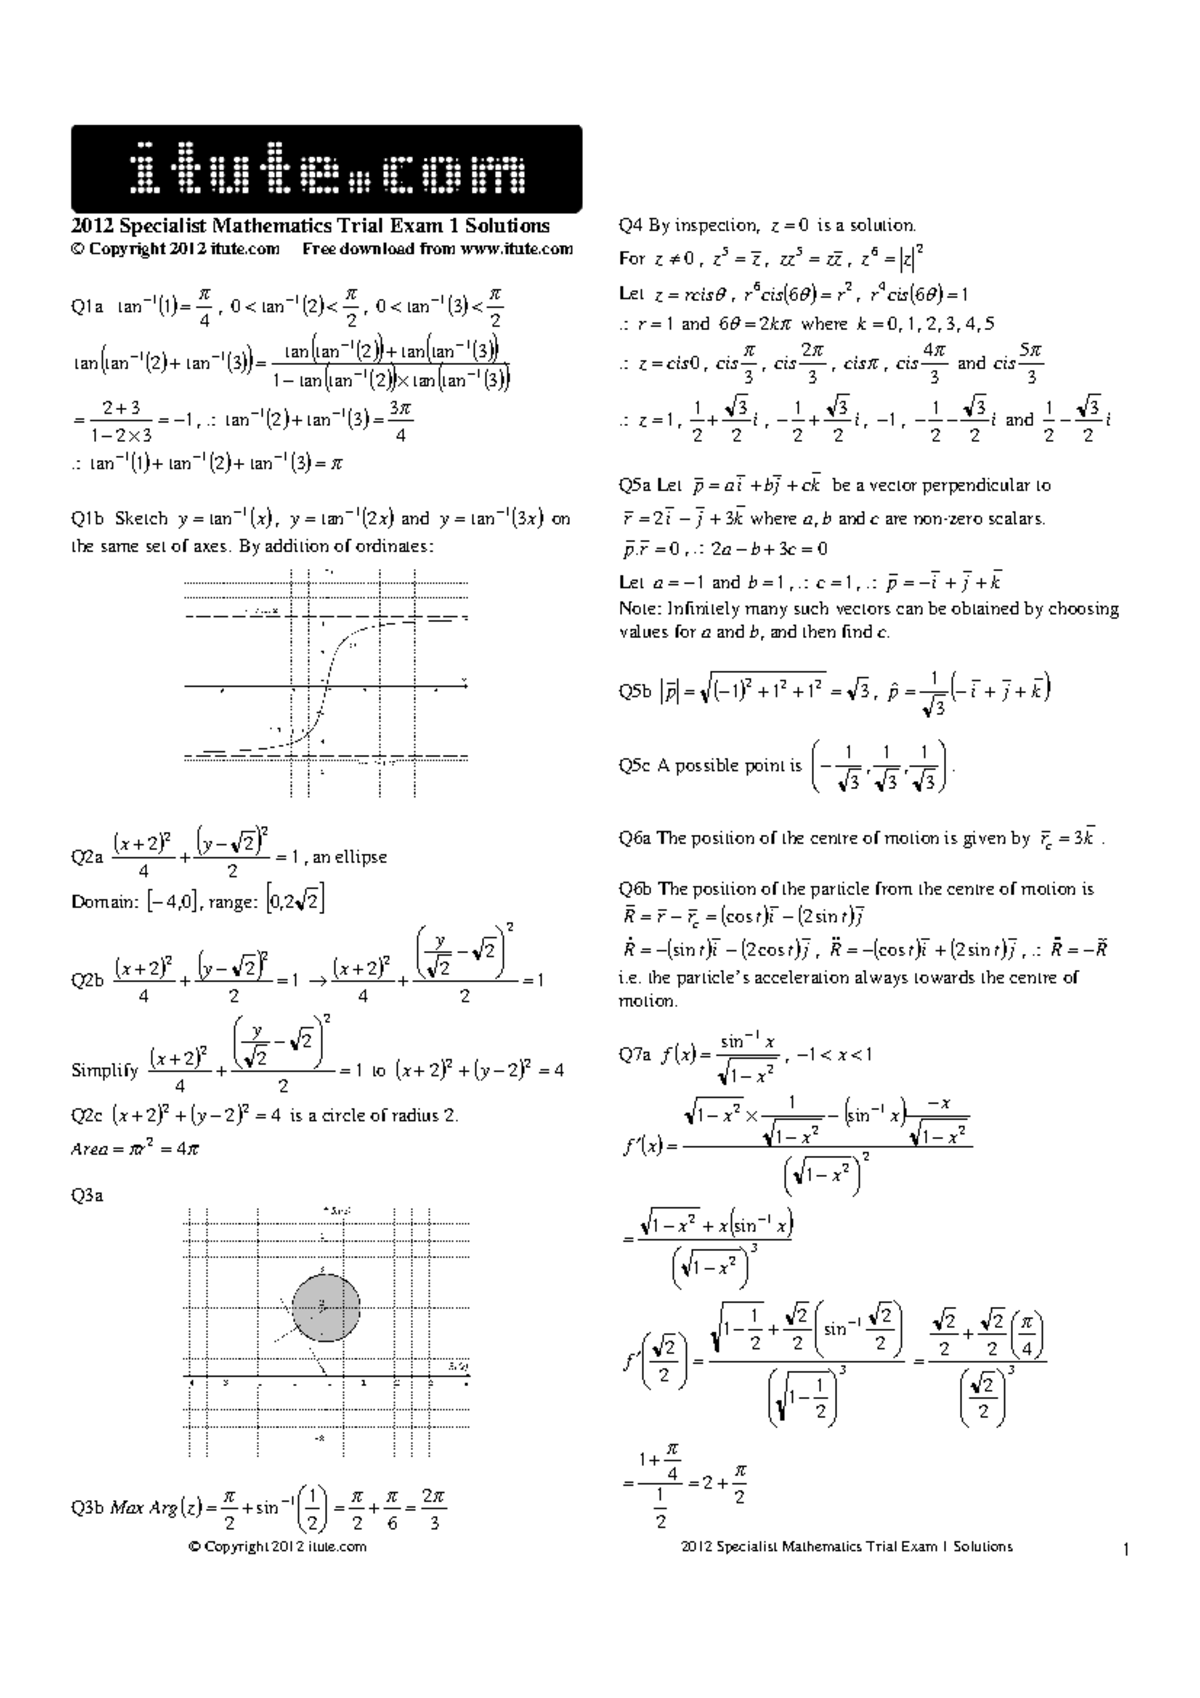 itute.com
2012 Specialist Mathematics Trial Exam 1 Solutions
© Copyright 2012 itute.com Free download from www.itute.com
Q1a tan⁻¹(1) = π/4 , 0 < tan⁻¹(2) < π/2 , 0 < tan⁻¹(3) < π/2
tan(tan⁻¹(2) + tan⁻¹(3)) = (tan(tan⁻¹(2)) + tan(tan⁻¹(3))) / (1 − tan(tan⁻¹(2)) × tan(tan⁻¹(3)))
= (2 + 3)/(1 − 2 × 3) = −1 , ∴ tan⁻¹(2) + tan⁻¹(3) = 3π/4
∴ tan⁻¹(1) + tan⁻¹(2) + tan⁻¹(3) = π
Q1b Sketch y = tan⁻¹(x) , y = tan⁻¹(2x) and y = tan⁻¹(3x) on
the same set of axes. By addition of ordinates:
Q2a (x + 2)²/4 + (y − √2)²/2 = 1 , an ellipse
Domain: [−4,0] , range: [0,2√2]
Q2b (x + 2)²/4 + (y − √2)²/2 = 1 → (x + 2)²/4 + (y/√2 − √2)²/2 = 1
Simplify (x + 2)²/4 + (y/√2 − √2)²/2 = 1 to (x + 2)² + (y − 2)² = 4
Q2c (x + 2)² + (y − 2)² = 4 is a circle of radius 2.
Area = πr² = 4π
Q3a
Q3b Max Arg(z) = π/2 + sin⁻¹(1/2) = π/2 + π/6 = 2π/3
© Copyright 2012 itute.com
Q4 By inspection, z = 0 is a solution.
For z ≠ 0 , z⁵ = z̅ , zz⁵ = zz̅ , z⁶ = |z|²
Let z = rcisθ , r⁶cis(6θ) = r² , r⁴cis(6θ) = 1
∴ r = 1 and 6θ = 2kπ where k = 0, 1, 2, 3, 4, 5
∴ z = cis0 , cis π/3 , cis 2π/3 , cisπ , cis 4π/3 and cis 5π/3
∴ z = 1 , 1/2 + √3/2 i , −1/2 + √3/2 i , −1 , −1/2 − √3/2 i and 1/2 − √3/2 i
Q5a Let p̅ = ai̅ + bj̅ + ck̅ be a vector perpendicular to
r̅ = 2i̅ − j̅ + 3k̅ where a, b and c are non-zero scalars.
p̅.r̅ = 0 , ∴ 2a − b + 3c = 0
Let a = −1 and b = 1 , ∴ c = 1 , ∴ p̅ = −i̅ + j̅ + k̅
Note: Infinitely many such vectors can be obtained by choosing
values for a and b, and then find c.
Q5b |p̅| = √((−1)² + 1² + 1²) = √3 , p̂ = 1/√3 (−i̅ + j̅ + k̅)
Q5c A possible point is (−1/√3 , 1/√3 , 1/√3) .
Q6a The position of the centre of motion is given by r̅c = 3k̅ .
Q6b The position of the particle from the centre of motion is
R̅ = r̅ − r̅c = (cos t)i̅ − (2sin t)j̅
Ṙ̅ = −(sin t)i̅ − (2cos t)j̅ , R̈̅ = −(cos t)i̅ + (2sin t)j̅ , ∴ R̈̅ = −R̅
i.e. the particle's acceleration always towards the centre of
motion.
Q7a f(x) = sin⁻¹ x / √(1 − x²) , −1 < x < 1
f′(x) = (√(1 − x²) × 1/√(1 − x²) − (sin⁻¹ x) −x/√(1 − x²)) / (√(1 − x²))²
= (√(1 − x²) + x(sin⁻¹ x)) / (√(1 − x²))³
f′(√2/2) = (√(1 − 1/2) + √2/2 (sin⁻¹ √2/2)) / (√(1 − 1/2))³ = (√2/2 + √2/2 (π/4)) / (√2/2)³
= (1 + π/4) / (1/2) = 2 + π/2
2012 Specialist Mathematics Trial Exam 1 Solutions 1